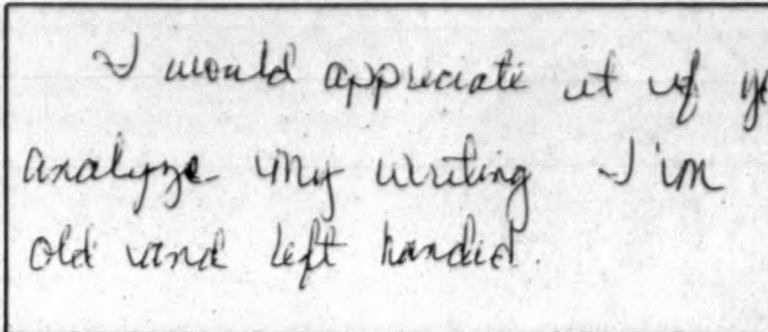 I would appreciate it if
analyze my writing I'm
old and left handed.